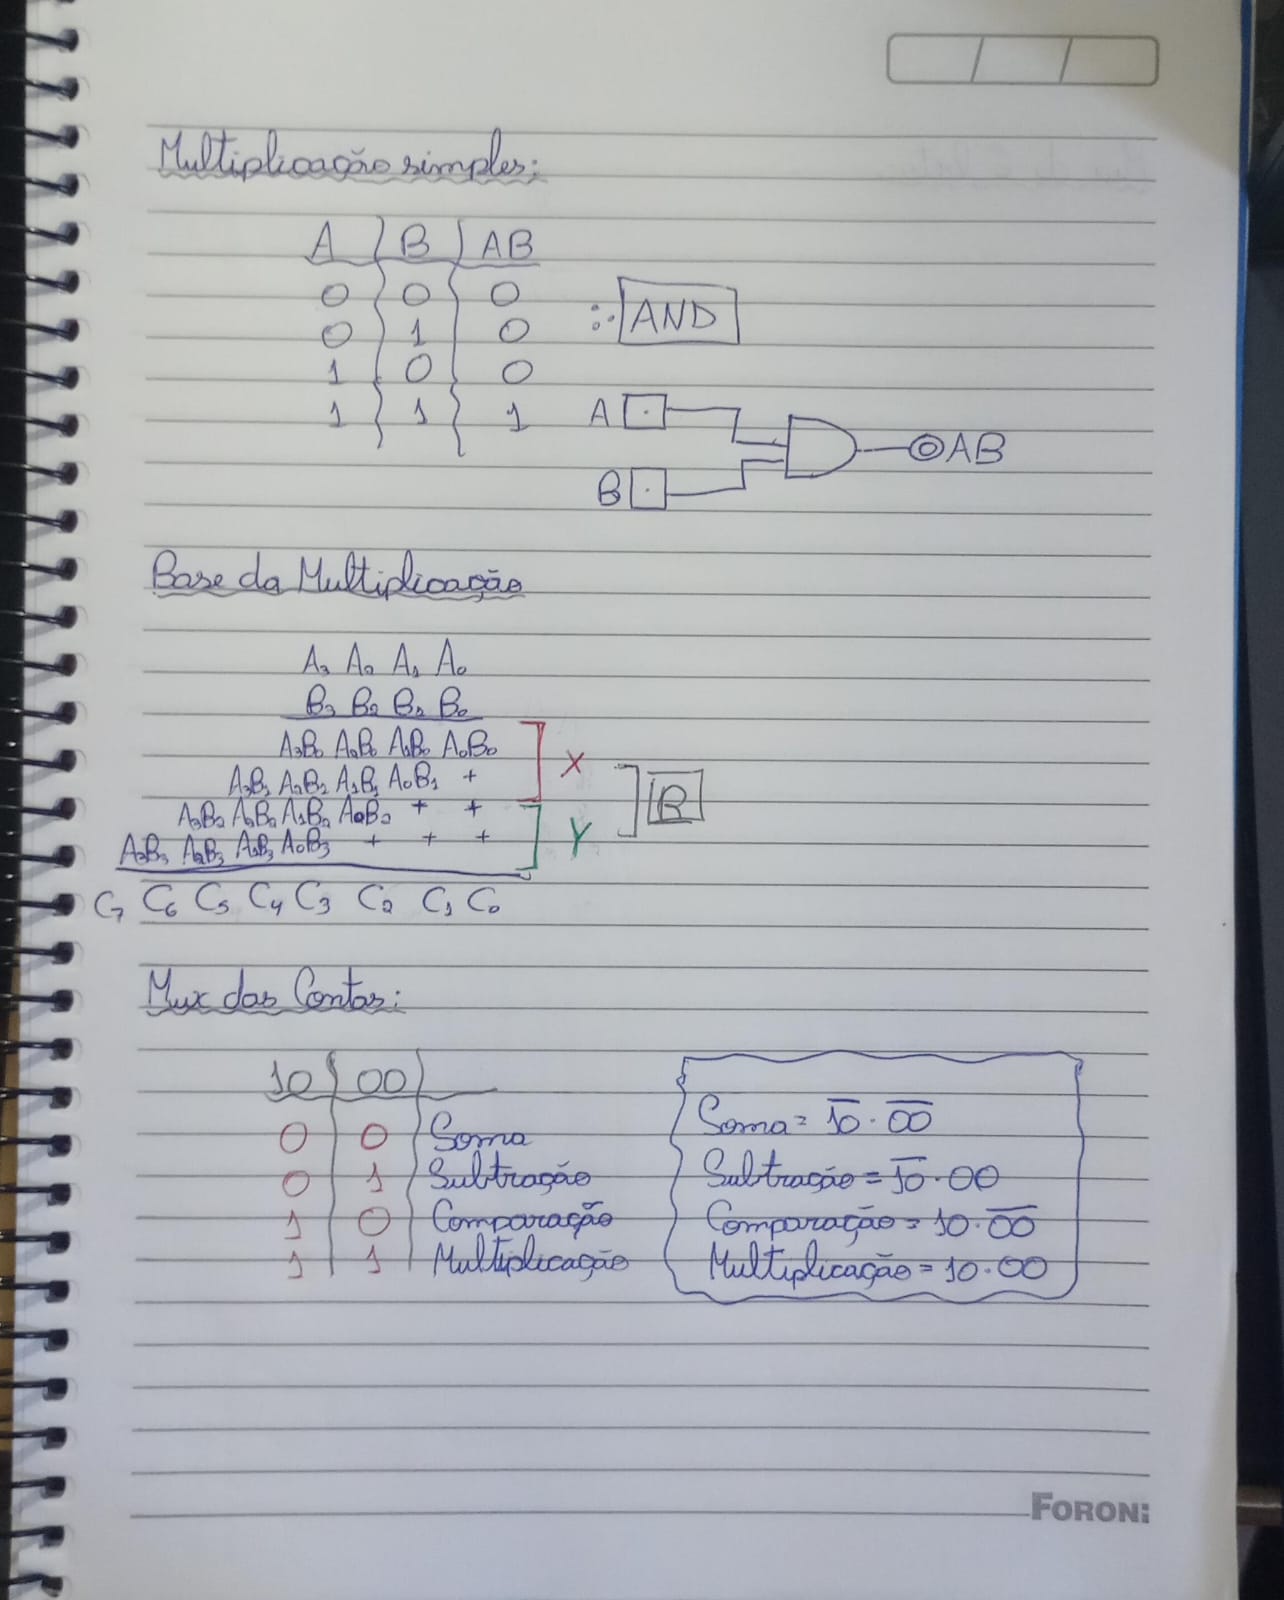 Multiplicação simples:
A B AB
0 0 0
0 1 0
1 0 0
1 1 1
∴ AND
A
B
AB
Base da Multiplicação
A₃ A₂ A₁ A₀
B₃ B₂ B₁ B₀
A₃B₀ A₂B₀ A₁B₀ A₀B₀
A₃B₁ A₂B₁ A₁B₁ A₀B₁ +
X
A₃B₂ A₂B₂ A₁B₂ A₀B₂ + +
A₃B₃ A₂B₃ A₁B₃ A₀B₃ + + +
Y
R
C₇ C₆ C₅ C₄ C₃ C₂ C₁ C₀
Mux das Contas:
10 00
0 0 Soma
0 1 Subtração
1 0 Comparação
1 1 Multiplicação
Soma = 1̅0̅ · 0̅0̅
Subtração = 1̅0̅ · 00
Comparação = 10 · 0̅0̅
Multiplicação = 10 · 00
FORONI